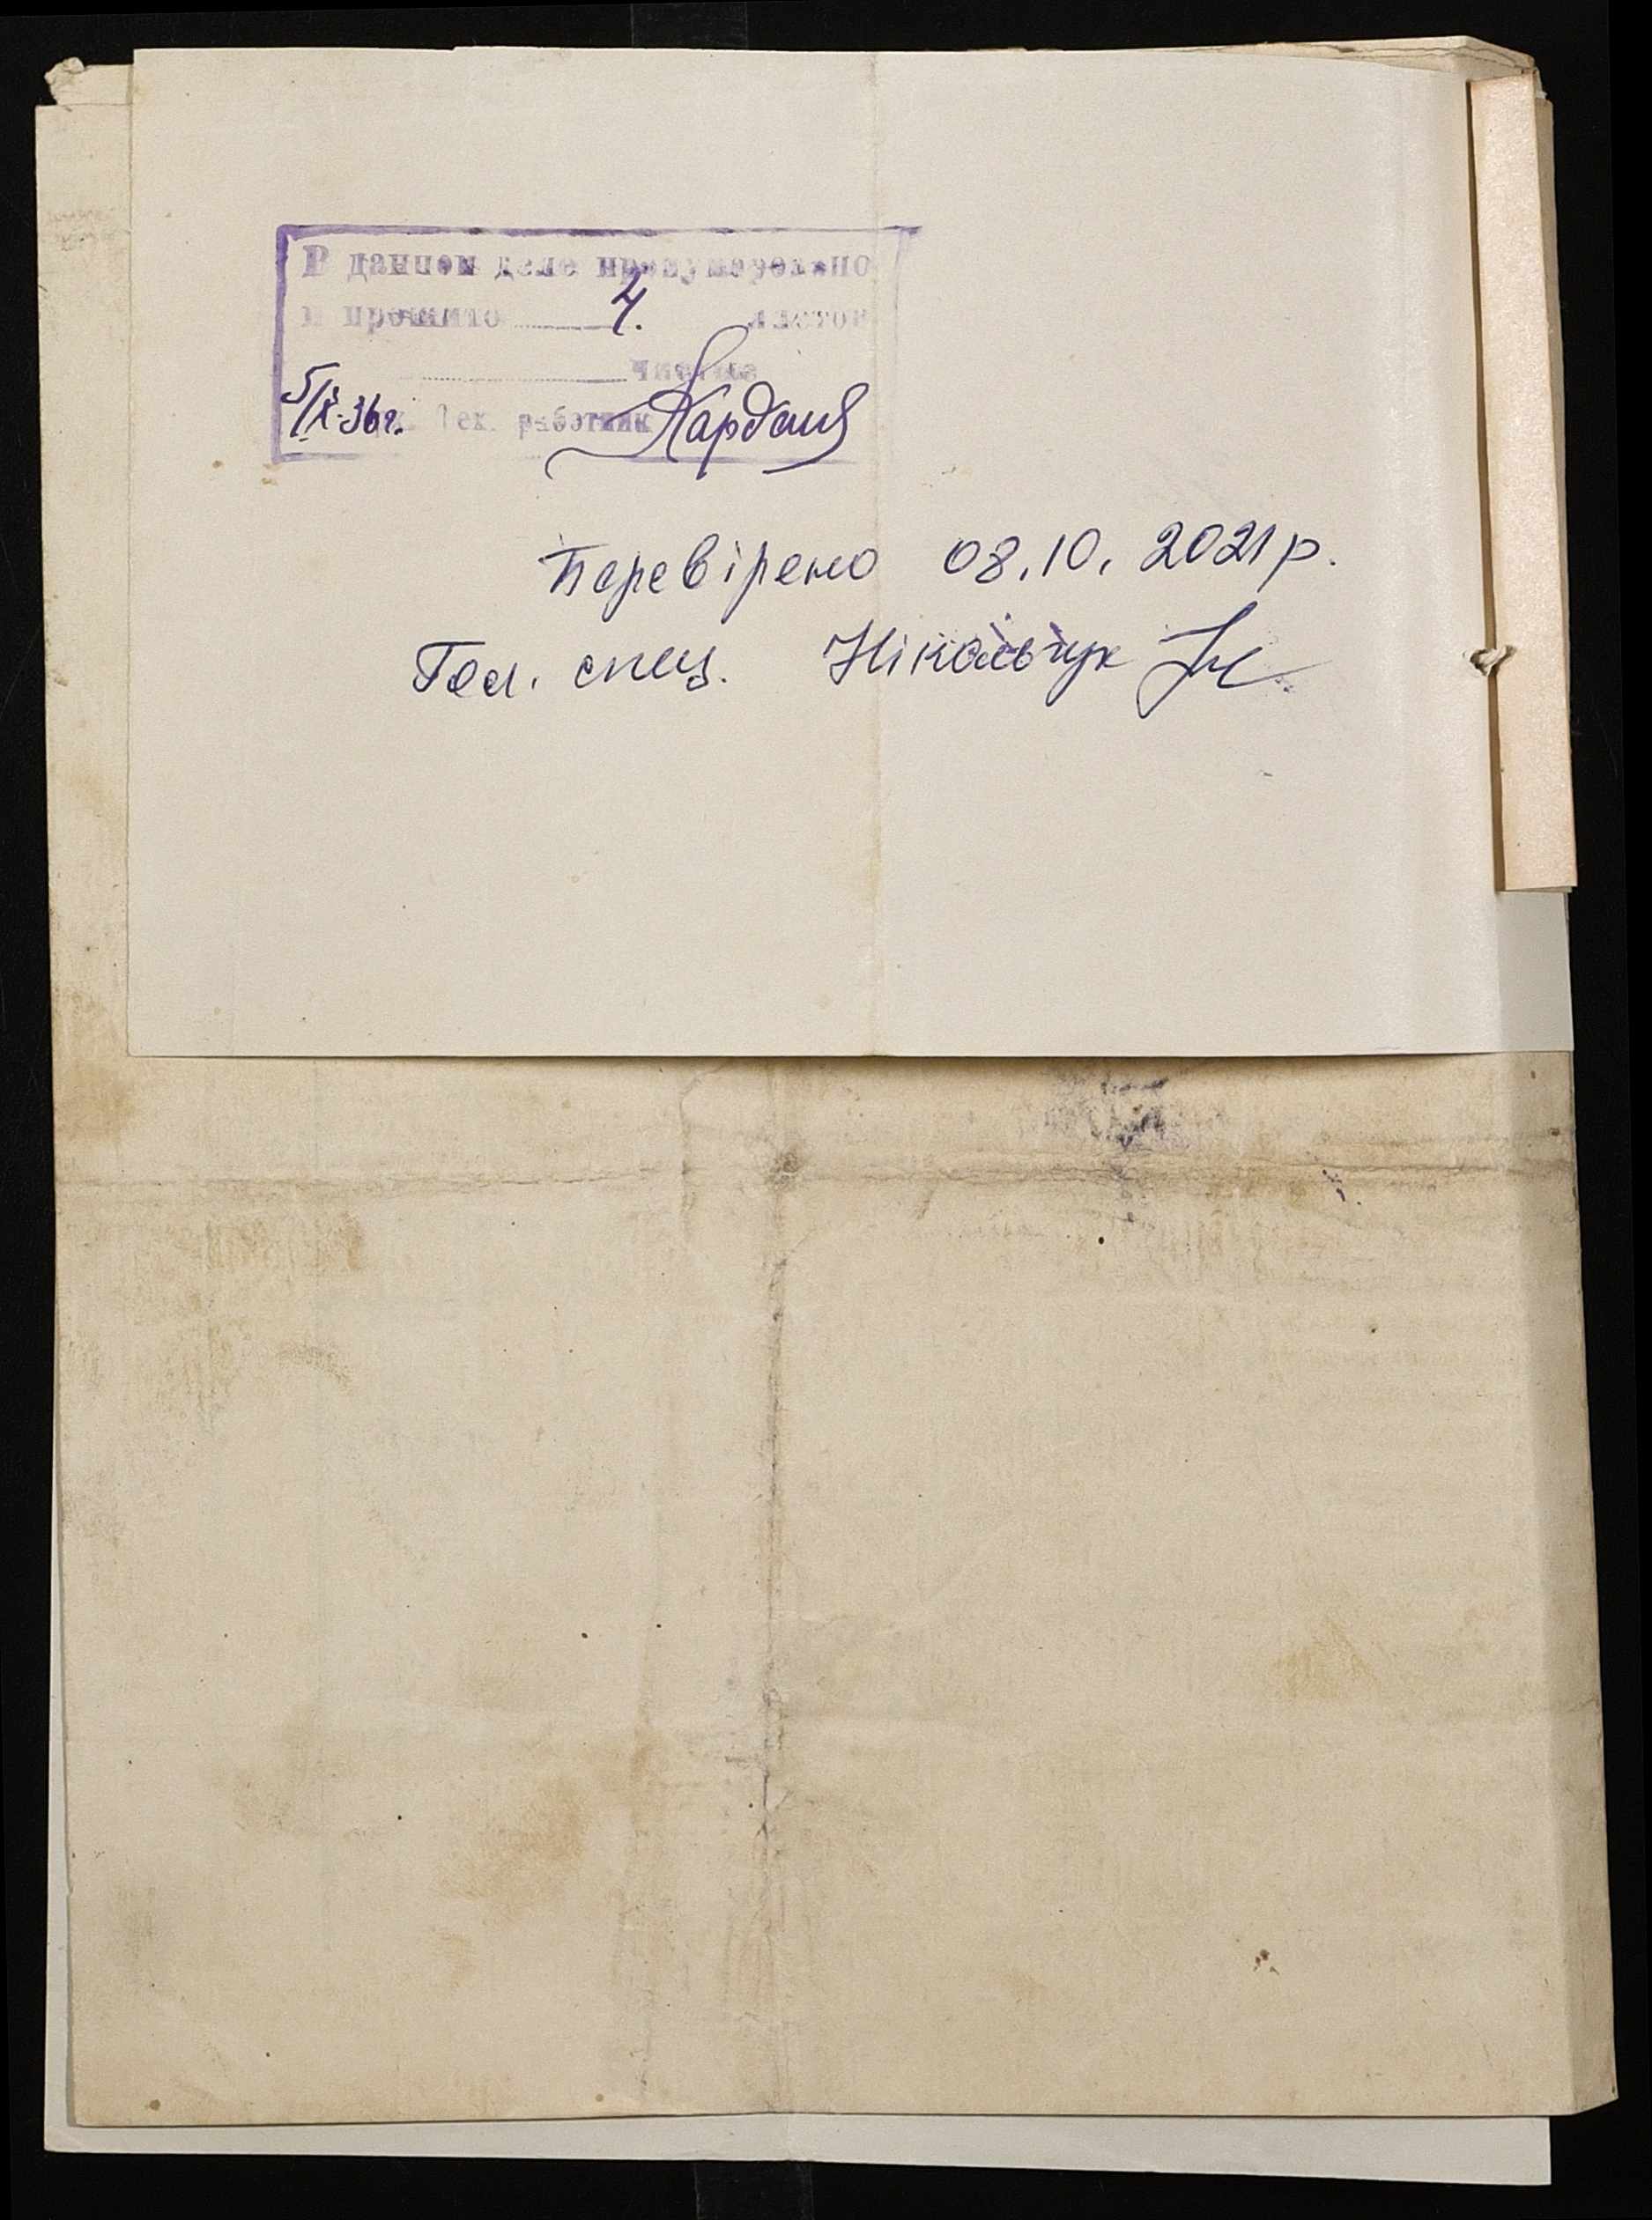 В данном деле пронумеровано
и прошито 4. листов
5/IX-36г. Тех. работник
Перевірено 08.10.2021р.
Гол. спец. Нікольчук